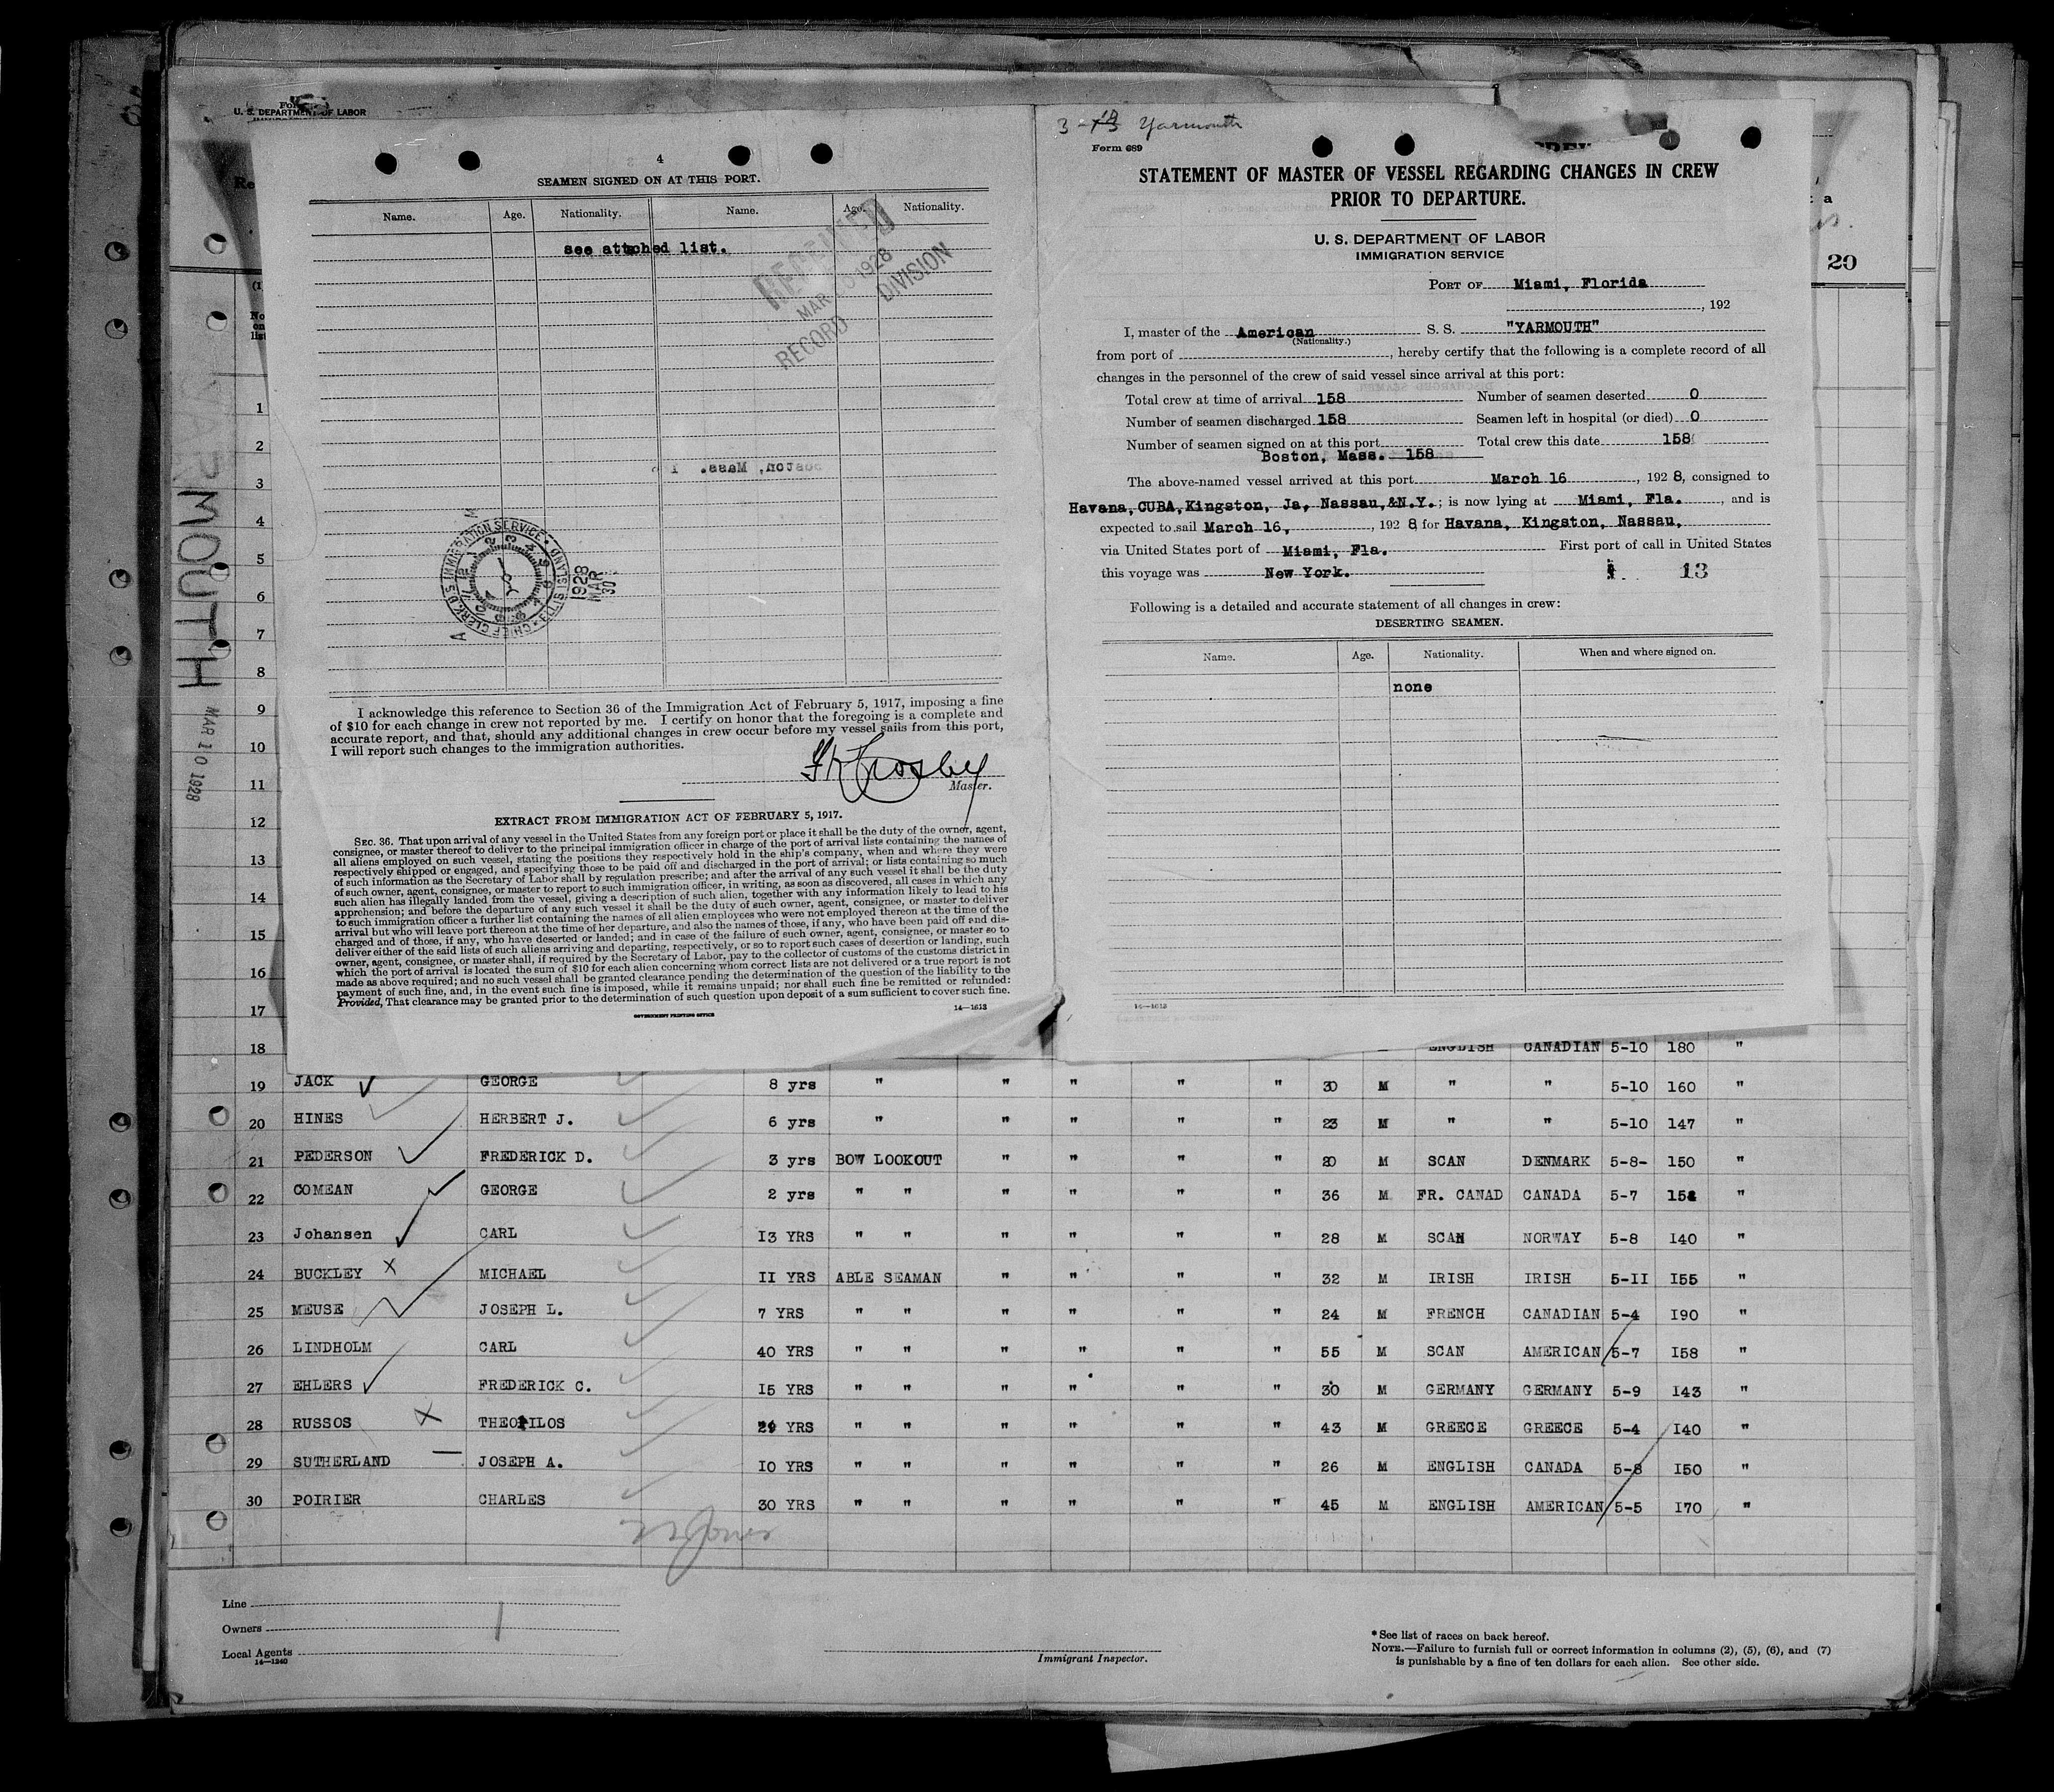 U. S. DEPARTMENT OF LABOR
4
SEAMEN SIGNED ON AT THIS PORT.
Name. Age. Nationality. Name. Age. Nationality.
see attached list.
RECEIVED
MAR 1928
RECORD DIVISION
Boston, Mass.
CHIEF CLERK U.S. IMMIGRATION SERVICE ELLIS ISLAND
1928
MAR
30
A M
YARMOUTH
MAR 10 1928
I acknowledge this reference to Section 36 of the Immigration Act of February 5, 1917, imposing a fine
of $10 for each change in crew not reported by me. I certify on honor that the foregoing is a complete and
accurate report, and that, should any additional changes in crew occur before my vessel sails from this port,
I will report such changes to the immigration authorities.
Crosby
Master.
EXTRACT FROM IMMIGRATION ACT OF FEBRUARY 5, 1917.
SEC. 36. That upon arrival of any vessel in the United States from any foreign port or place it shall be the duty of the owner, agent,
consignee, or master thereof to deliver to the principal immigration officer in charge of the port of arrival lists containing the names of
all aliens employed on such vessel, stating the positions they respectively hold in the ship's company, when and where they were
respectively shipped or engaged, and specifying those to be paid off and discharged in the port of arrival; or lists containing so much
of such information as the Secretary of Labor shall by regulation prescribe; and after the arrival of any such vessel it shall be the duty
of such owner, agent, consignee, or master to report to such immigration officer, in writing, as soon as discovered, all cases in which any
such alien has illegally landed from the vessel, giving a description of such alien, together with any information likely to lead to his
apprehension; and before the departure of any such vessel it shall be the duty of such owner, agent, consignee, or master to deliver
to such immigration officer a further list containing the names of all alien employees who were not employed thereon at the time of the
arrival but who will leave port thereon at the time of her departure, and also the names of those, if any, who have been paid off and dis-
charged and of those, if any, who have deserted or landed; and in case of the failure of such owner, agent, consignee, or master so to
deliver either of the said lists of such aliens arriving and departing, respectively, or so to report such cases of desertion or landing, such
owner, agent, consignee, or master shall, if required by the Secretary of Labor, pay to the collector of customs of the customs district in
which the port of arrival is located the sum of $10 for each alien concerning whom correct lists are not delivered or a true report is not
made as above required; and no such vessel shall be granted clearance pending the determination of the question of the liability to the
payment of such fine, and, in the event such fine is imposed, while it remains unpaid; nor shall such fine be remitted or refunded:
Provided, That clearance may be granted prior to the determination of such question upon deposit of a sum sufficient to cover such fine.
GOVERNMENT PRINTING OFFICE 14—1613
Yarmouth
Form 689
STATEMENT OF MASTER OF VESSEL REGARDING CHANGES IN CREW
PRIOR TO DEPARTURE.
U. S. DEPARTMENT OF LABOR
IMMIGRATION SERVICE
PORT OF Miami, Florida
, 192
I, master of the American S. S. "YARMOUTH"
(Nationality.)
from port of , hereby certify that the following is a complete record of all
changes in the personnel of the crew of said vessel since arrival at this port:
Total crew at time of arrival 158 Number of seamen deserted 0
Number of seamen discharged 158 Seamen left in hospital (or died) 0
Number of seamen signed on at this port Total crew this date 158
Boston, Mass. 158
The above-named vessel arrived at this port March 16 , 192 8, consigned to
Havana, CUBA, Kingston, Ja, Nassau, &N.Y. ; is now lying at Miami, Fla. , and is
expected to sail March 16, , 192 8 for Havana, Kingston, Nassau,
via United States port of Miami, Fla. First port of call in United States
this voyage was New York. 13
Following is a detailed and accurate statement of all changes in crew:
DESERTING SEAMEN.
Name. Age. Nationality. When and where signed on.
none
14—1613
20
1
2
3
4
5
6
7
8
9
10
11
12
13
14
15
16
17
18 ENGLISH CANADIAN 5-10 180 "
19 JACK GEORGE 8 yrs " " " " " 30 M " " 5-10 160 "
20 HINES HERBERT J. 6 yrs " " " " " 23 M " " 5-10 147 "
21 PEDERSON FREDERICK D. 3 yrs BOW LOOKOUT " " " " 20 M SCAN DENMARK 5-8- 150 "
22 COMEAN GEORGE 2 yrs " " " " " " 36 M FR. CANAD CANADA 5-7 "
23 Johansen CARL I3 YRS " " " " " " 28 M SCAN NORWAY 5-8 I40 "
24 BUCKLEY MICHAEL II YRS ABLE SEAMAN " " " " 32 M IRISH IRISH 5-II I55 "
25 MEUSE JOSEPH L. 7 YRS " " " " " " 24 M FRENCH CANADIAN 5-4 I90 "
26 LINDHOLM CARL 40 YRS " " " " " " 55 M SCAN AMERICAN 5-7 I58 "
27 EHLERS FREDERICK C. I5 YRS " " " " " " 30 M GERMANY GERMANY 5-9 I43 "
28 RUSSOS THEOFILOS 29 YRS " " " " " " 43 M GREECE GREECE 5-4 I40 "
29 SUTHERLAND JOSEPH A. I0 YRS " " " " " " 26 M ENGLISH CANADA 5-8 I50 "
30 POIRIER CHARLES 30 YRS " " " " " " 45 M ENGLISH AMERICAN 5-5 I70 "
Line
Owners
Local Agents
14—1240
Immigrant Inspector.
*See list of races on back hereof.
NOTE.—Failure to furnish full or correct information in columns (2), (5), (6), and (7)
is punishable by a fine of ten dollars for each alien. See other side.